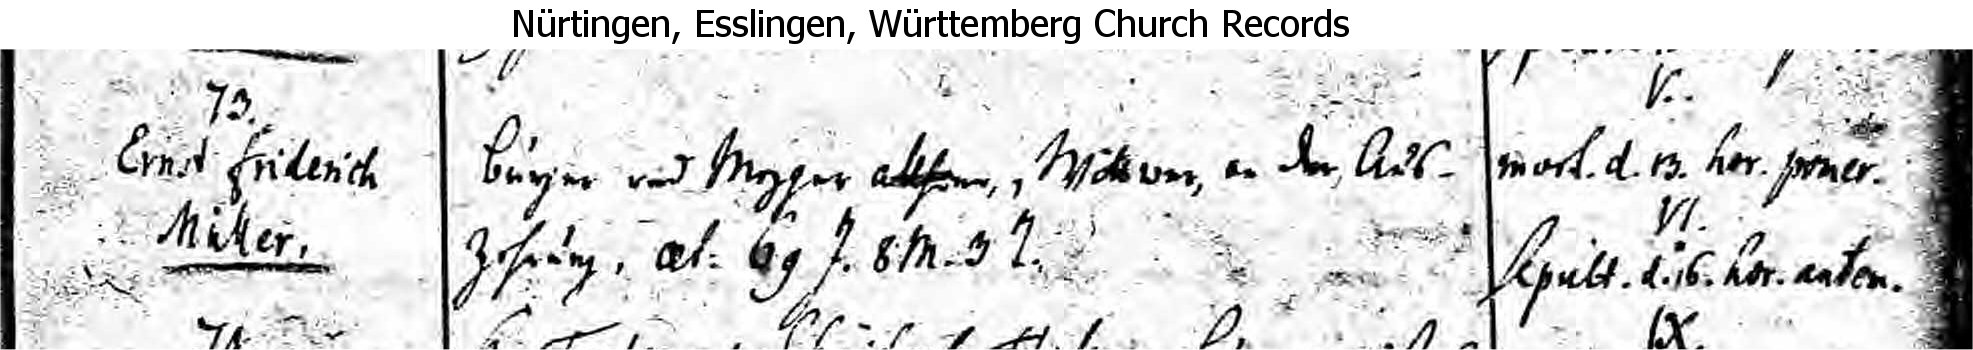 Nürtingen, Esslingen, Württemberg Church Records
73.
Ernst Friderich
Müller,
Bürger und Mezger allhier, Wittwer, an der Aus-
zehrung, æt. 69 J. 8 M. 3 T.
V.
mort. d. 13. hor. pomer.
VI.
sepult. d. 16. hor. antem.
74
IX.